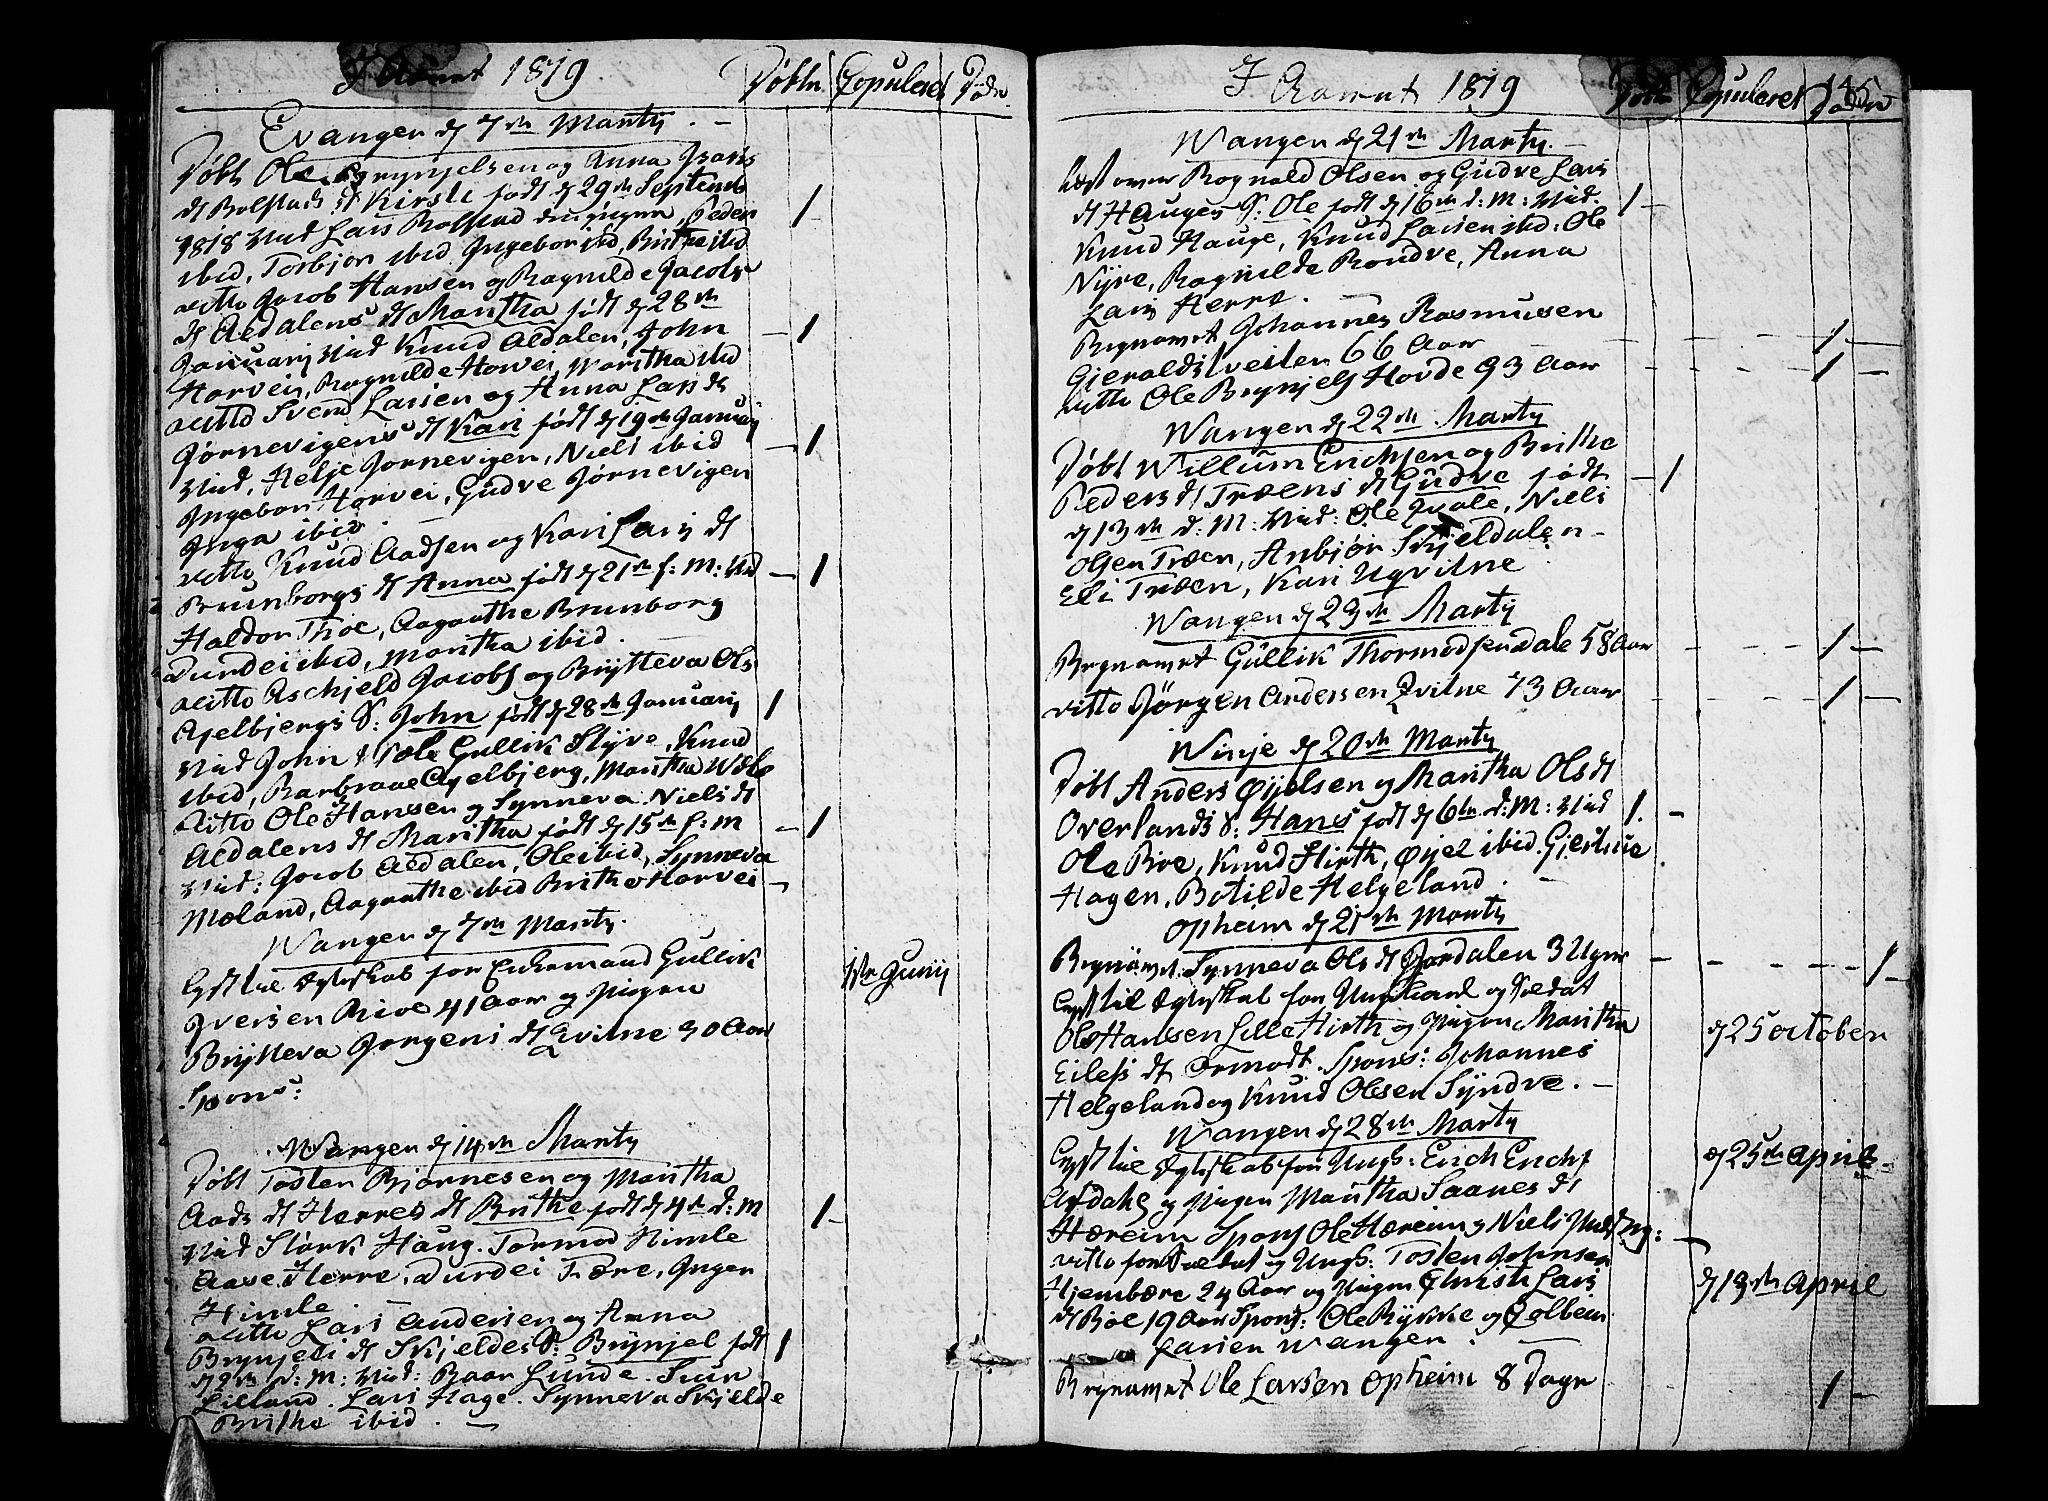 I Aaret 1819. Døbte Copuleret Døde
Evangen d 7de Marty. -
Døbt Ole Brynjelsen og Anna Isacs
dt Bolstads dt Kirsti født d 29de Septemb
1818 Vid Lars Bolstad Peder
ibid, Torbjør ibid Ingebor ibid, Brithe ibid
ditto Jacob Hansen og Ragnilde Jacobs
dt Aldalens dt Maritha født d 28de
Januarij Vid Knud Aldalen, John
Horvei, Ragnilde Horvei, Maritha ibid
ditto Svend Larsen og Anna Lars dt
Jørnevigens dt Kari født d 19de Januarij
Vid, Helje Jørnevigen, Niels ibid
Ingebor Horvei, Gudve Jørnevigen
Inga ibid
ditto Knud Aadsen og Kari Lars dt
Brunborgs dt Anna født d 21de f: M: Vid
Haldor Thoe, Aagaathe Brunborg
Durdei ibid, Maritha ibid.
ditto Aschjeld Jacobs og Brytteva Ols
Gjelbjergs S: John født d 28de Januarij
Vid John Gullik Styve, Knud
ibid, Barbraae Gjelbjerg, Maritha
ditto Ole Hansen og Synneva Niels dt
Aldalens dt Maritha født d 15de f: M
Vid: Jacob Aldalen, Ole ibid, Synneva
Mæland, Aagaathe ibid Brithe Horvei -
Wangen d 7de Marty.
Lyst til Egteskab for Enkemand Gullik
Iversen Bioe 41 Aar og Pigen 1ste Junij
Brytteva Jørgens dt Qvilne 30 Aar
Spons:
Wangen d 14de Marty
Døbt Tosten Bjørnesen og Maritha
Aads dt Herres dt Brithe født d 4de d: M
Vid Størk Haug. Tormod Himle
Aase Herre, Durdei Tære, Inger
Himle.
ditto Lars Andersen og Anna
Brynjels dt Skjeldes S: Brynjel født
d 9de d: M: Vid: Baar Lunde. Siur
Lilland. Lars Hage. Synneva Skjelde
Brithe ibid.
I Aaret 1819 Døbte Copuleret Døde 145
Wangen d 21de Marty. -
Læst over Rognald Olsen og Gudve Lars
dt Hauges S: Ole født d 16de d: M: Vid.
Knud Hauge, Knud Larsen ibid: Ole
Nyre, Ragnilde Rondve, Anna
Lars Herre.
Begravet Johannes Rasmusen
Gjeraldstveiten 66 Aar
ditto Ole Brynjels Hovde 93 Aar
Wangen d 22de Marty
Døbt Willum Erichsen og Brithe
Peders dt Træens dt Gudve født
d 13de d: M: Vid: Ole Qvale, Niels
Olsen Træen, Anbjør Skjeldalen
Eli Træen, Kari Ugvitne
Wangen d 23de Marty
Begravet Gullik Thormodsen Dale 58 Aar
ditto Jørgen Andersen Qvilne 73 Aar
Winje d 20de Marty
Døbt Anders Øyjelsen og Maritha Ols dt
Overlands S: Hans født d 6te d: M: Vid
Ole Bioe, Knud Hirth, Øyjel ibid. Gjertrue
Hagen, Botilde Helgeland.
Opheim d 21de Marty
Begravet. Synneva Ols dt Jordalen 3 Uger
Lyst til Egteskab for Ungkarl og Soldat
Ole Hansen Lille Hirth og Pigen Maritha d 25 October
Eilefs dt Ormodt. Spons: Johannes
Helgeland og Knud Olsen Syndve. -
Wangen d 28de Marty
Lyst til Egteskab for Ungk: Erich Erichs d 25de April
Afdahl og Pigen Maritha Saanes dt
Hæreim Spons Ole Hæreim og Niels
ditto for Soldat og Ungk: Tosten Johnsen
Hjembære 24 Aar og Pigen Christi Lars d 13de April
dt Bioe 19 Aar Spons: Ole Rykke og Colbein
Larsen Wangen
Begravet Ole Larsen Opheim 8 Dage